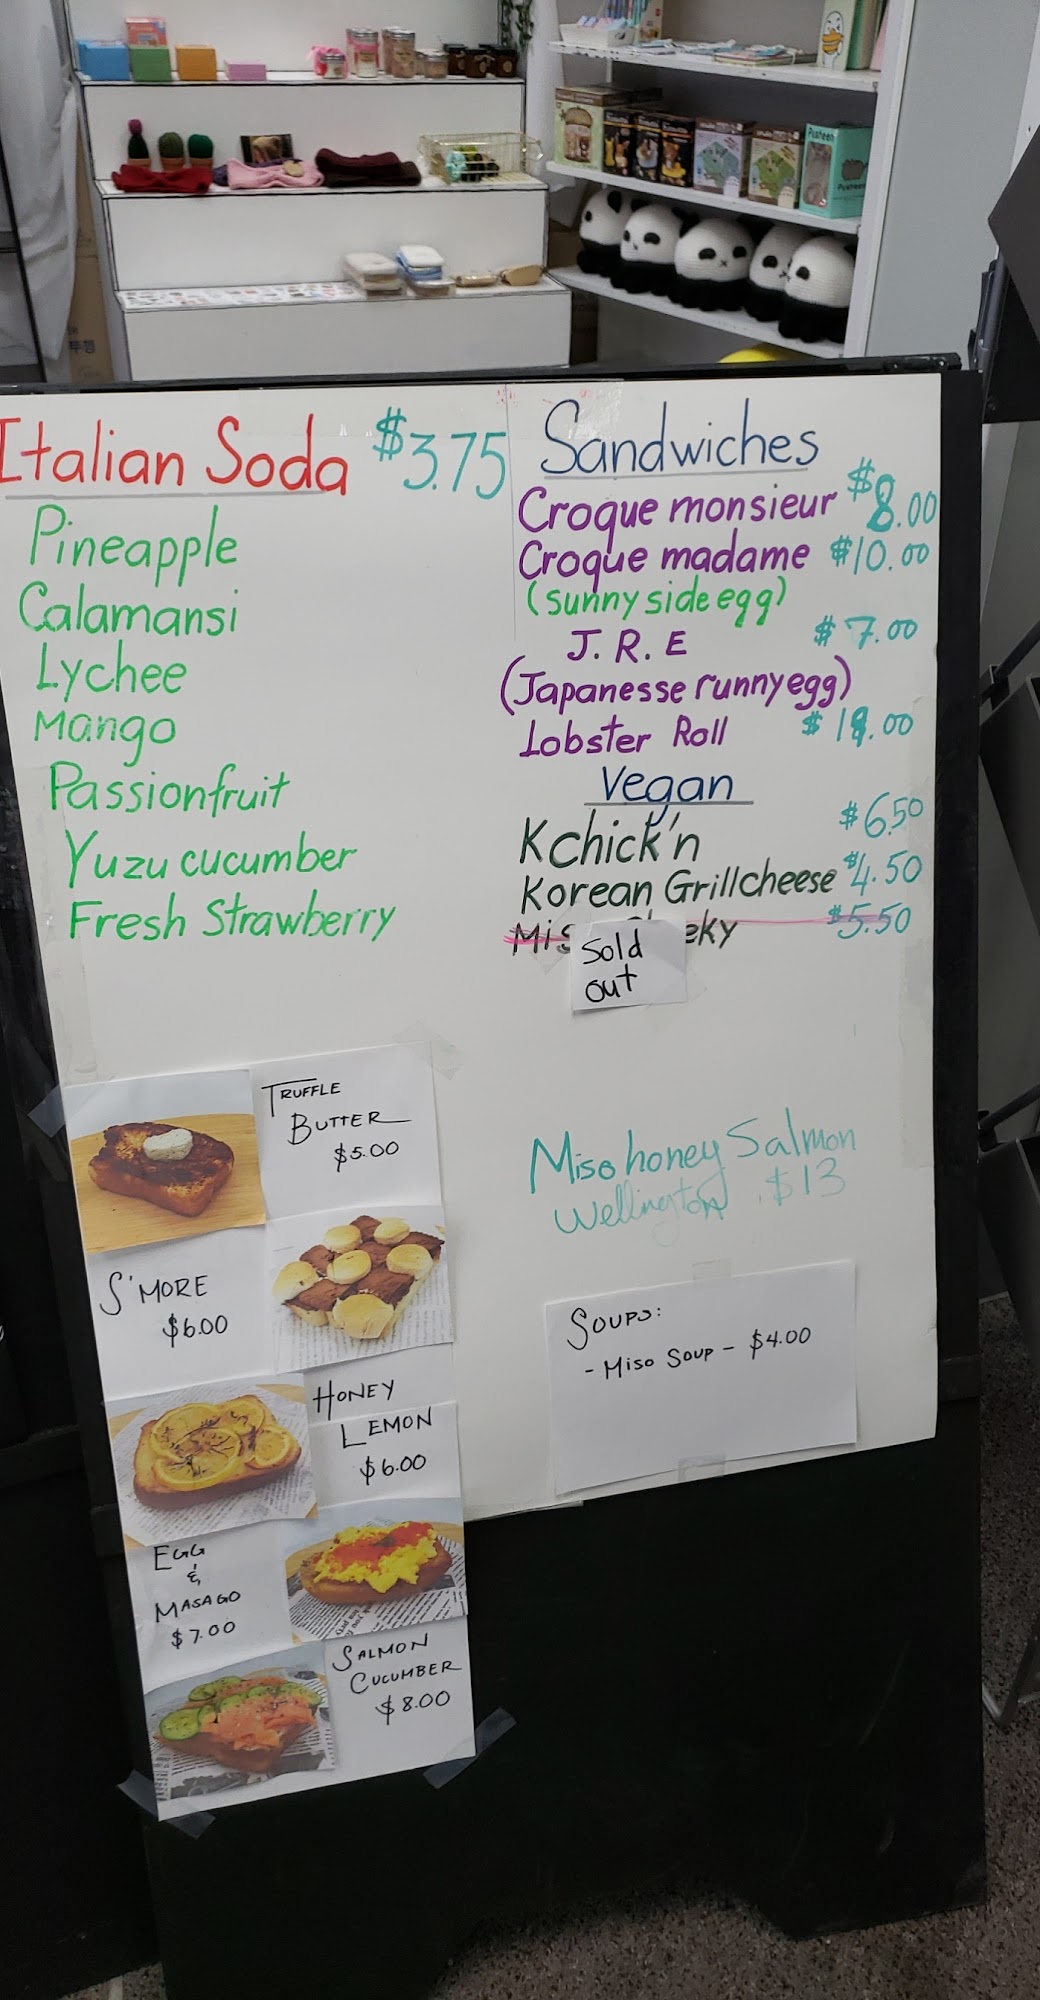 Pusheen
Pusheen
Italian Soda $3.75
Pineapple
Calamansi
Lychee
Mango
Passionfruit
Yuzu cucumber
Fresh Strawberry
Sandwiches
Croque monsieur $8.00
Croque madame $10.00
(sunny side egg)
J.R.E $7.00
(Japanesse runny egg)
Lobster Roll
Vegan
Kchick'n $6.50
Korean Grillcheese $4.50
$5.50
Sold
out
Miso honey Salmon
Wellington $13
Soups:
- Miso Soup - $4.00
Truffle
Butter
$5.00
S'more
$6.00
Honey
Lemon
$6.00
Egg
&
Masago
$7.00
Salmon
Cucumber
$8.00